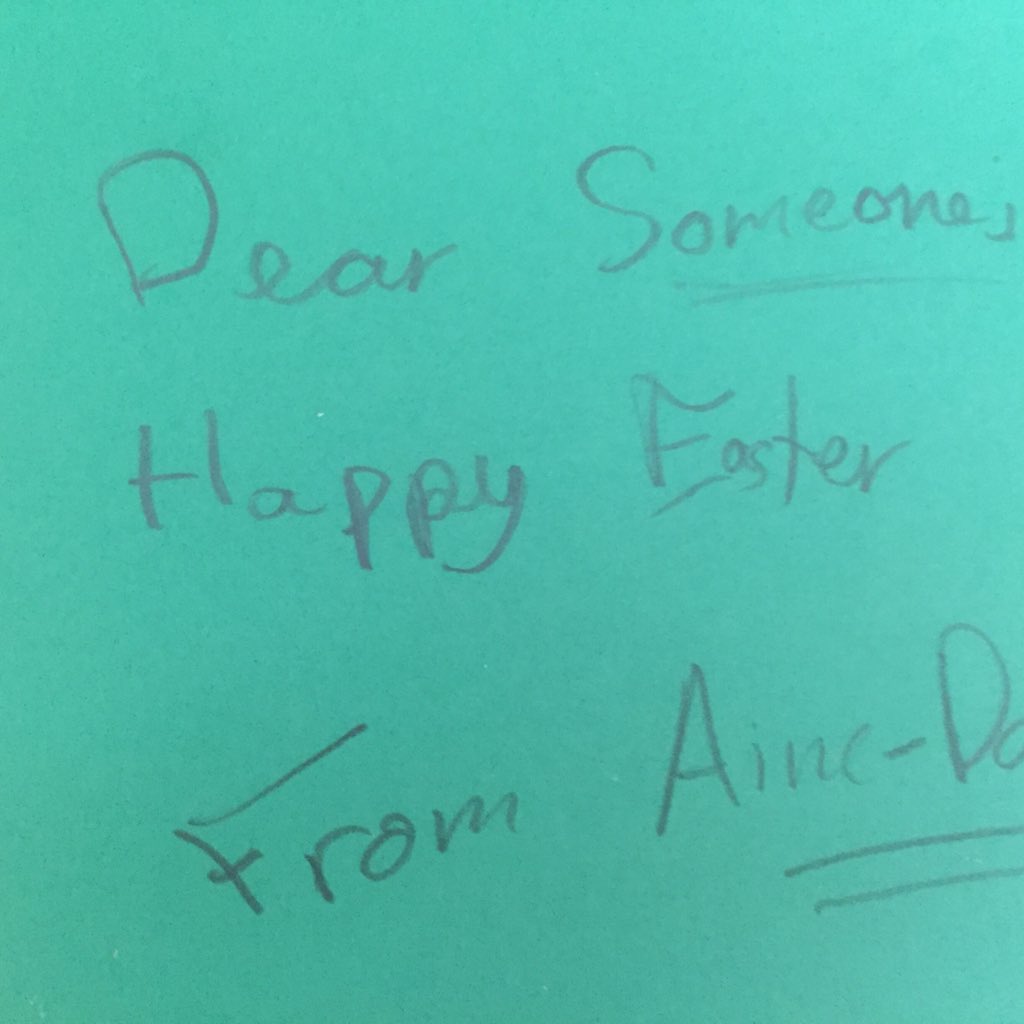 Dear Someone,
Happy Easter
From Aine-Da